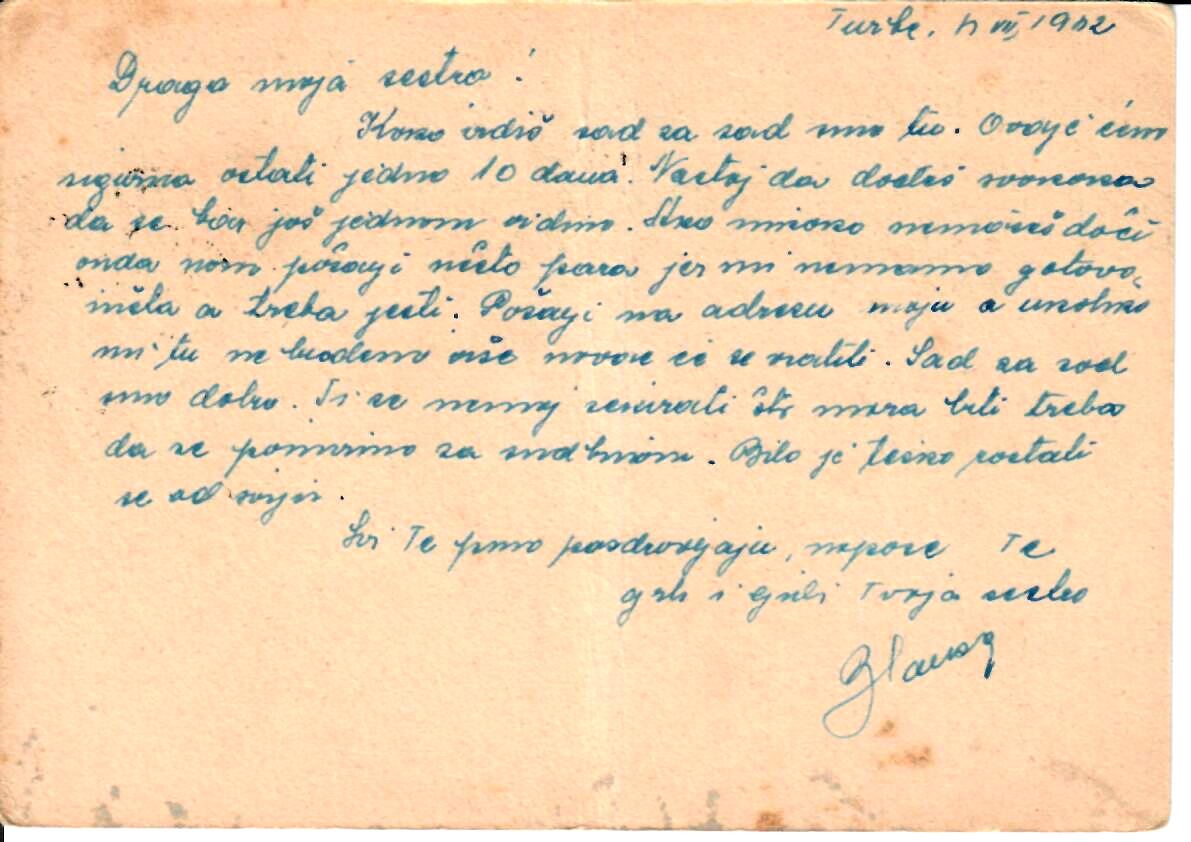 Turbe, VII 1942
Draga moja sestro!
Kako vidiš sad za sad smo tu. Ovdje ćemo
sigurno ostati jedno 10 dana. Nastoj da dođeš svakako
da se bar još jednom vidimo. Ako nikako nemožeš doći
onda nam pošalji nešto para jer mi nemamo gotovo
ništa a treba jesti. Pošalji na adresu moju a ukoliko
mi tu ne budemo više novac će se vratiti. Sad za sad
smo dobro. Ti se nemoj sekirati što mora biti treba
da se pomirimo sa sudbinom. Bilo je teško rastati
se od svijih.
Svi Te puno pozdravljaju, napose Te
grli i ljubi Tvoja sestra